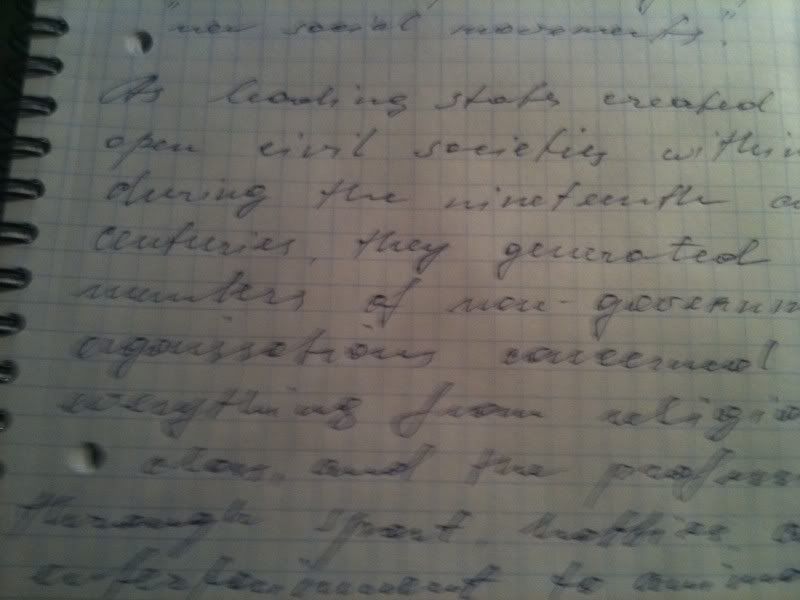 "new social movements."
As leading states created
open civil societies within
during the nineteenth
centuries, they generated
numbers of non-governm
organisations concerned
everything from religio
class, and the profess
through sport, hobbies
entertainment to